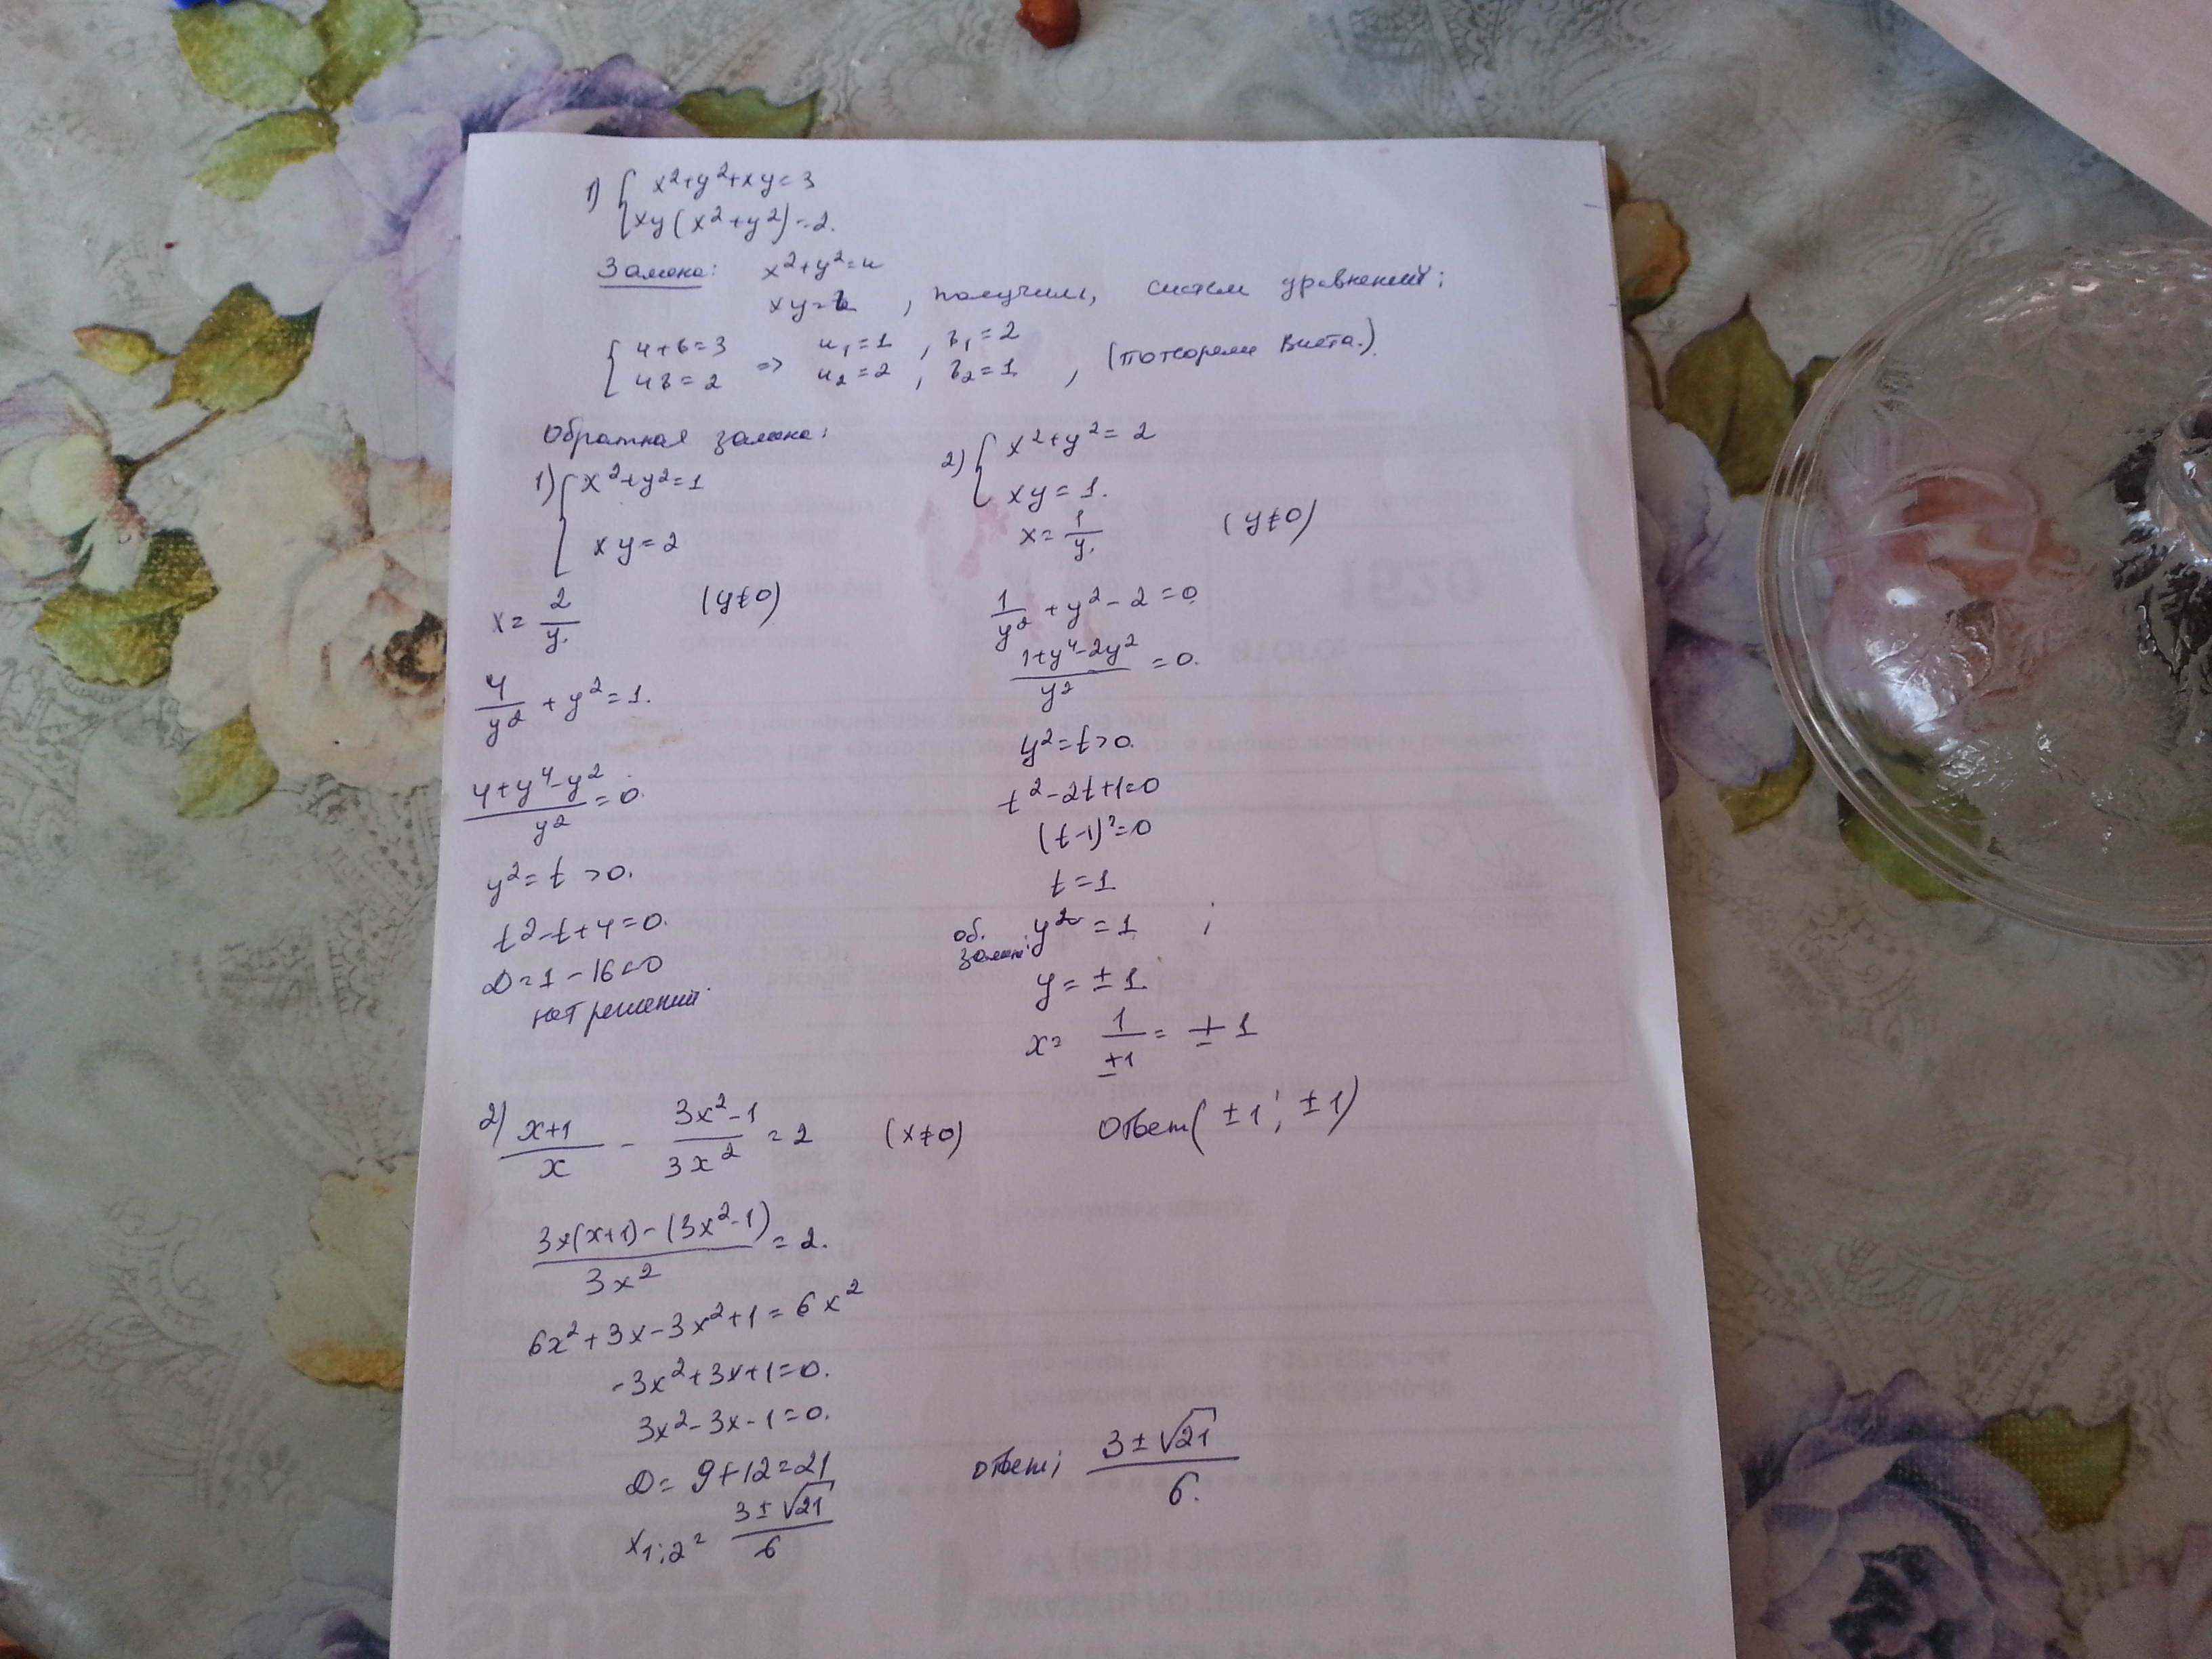 1) { x²+y²+xy=3
xy(x²+y²)=2.
Замена: x²+y²=u
xy=в, получим, систем уравнений:
{ u+в=3 => u₁=1, в₁=2
uв=2 u₂=2, в₂=1, (по теореме Виета.)
Обратная замена:
1) { x²+y²=1
xy=2
x= 2/y. (y≠0)
4/y² + y²=1.
(4+y⁴-y²)/y² =0.
y²=t>0.
t²-t+4=0.
D=1-16<0
нет решений.
2) { x²+y²=2
xy=1.
x=1/y. (y≠0)
1/y² +y²-2=0
(1+y⁴-2y²)/y² =0.
y²=t>0.
t²-2t+1=0
(t-1)²=0
t=1
об. замен: y²=1 ;
y=±1.
x= 1/±1 = ±1
Ответ(±1; ±1)
2) (x+1)/x - (3x²-1)/3x² =2 (x≠0)
(3x(x+1)-(3x²-1))/3x² =2.
6x²+3x-3x²+1=6x²
-3x²+3x+1=0.
3x²-3x-1=0.
D=9+12=21
x₁;₂= (3±√21)/6
ответ; (3±√21)/6.